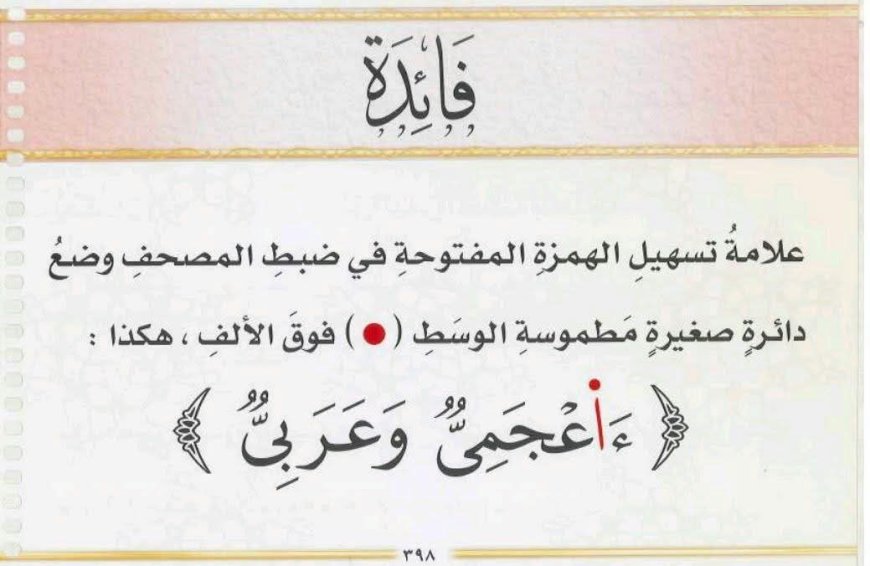 فَائِدَة
علامةُ تسهيلِ الهمزةِ المفتوحةِ في ضبطِ المصحفِ وضعُ
دائرةٍ صغيرةٍ مَطموسةِ الوسَطِ ( ● ) فوقَ الألفِ ، هكذا :
﴿ ءَا۬عْجَمِىٌّ وَعَرَبِىٌّ ﴾
٣٩٨